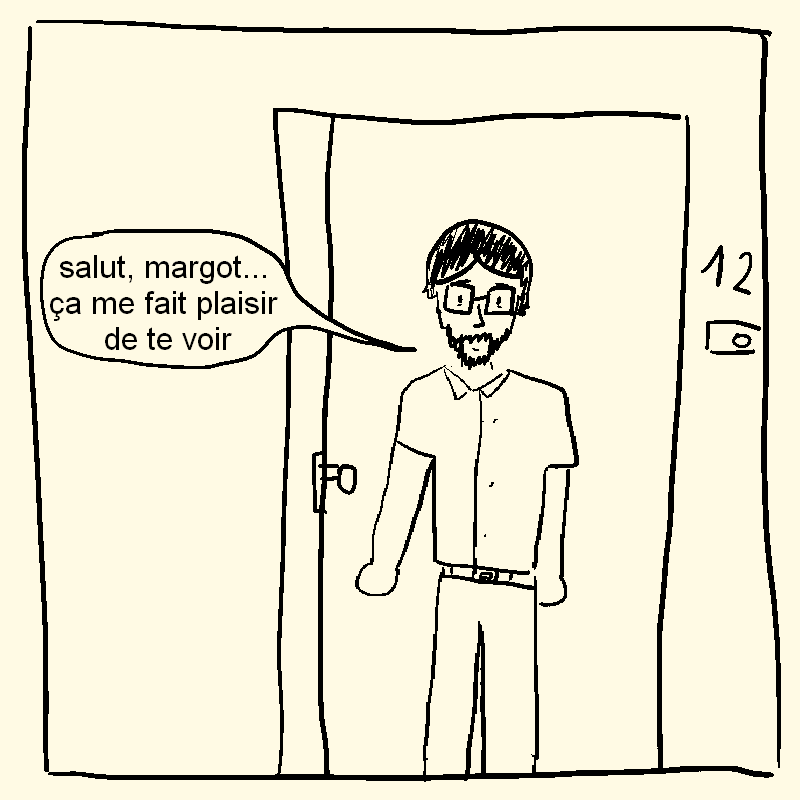 salut, margot...
ça me fait plaisir
de te voir
12